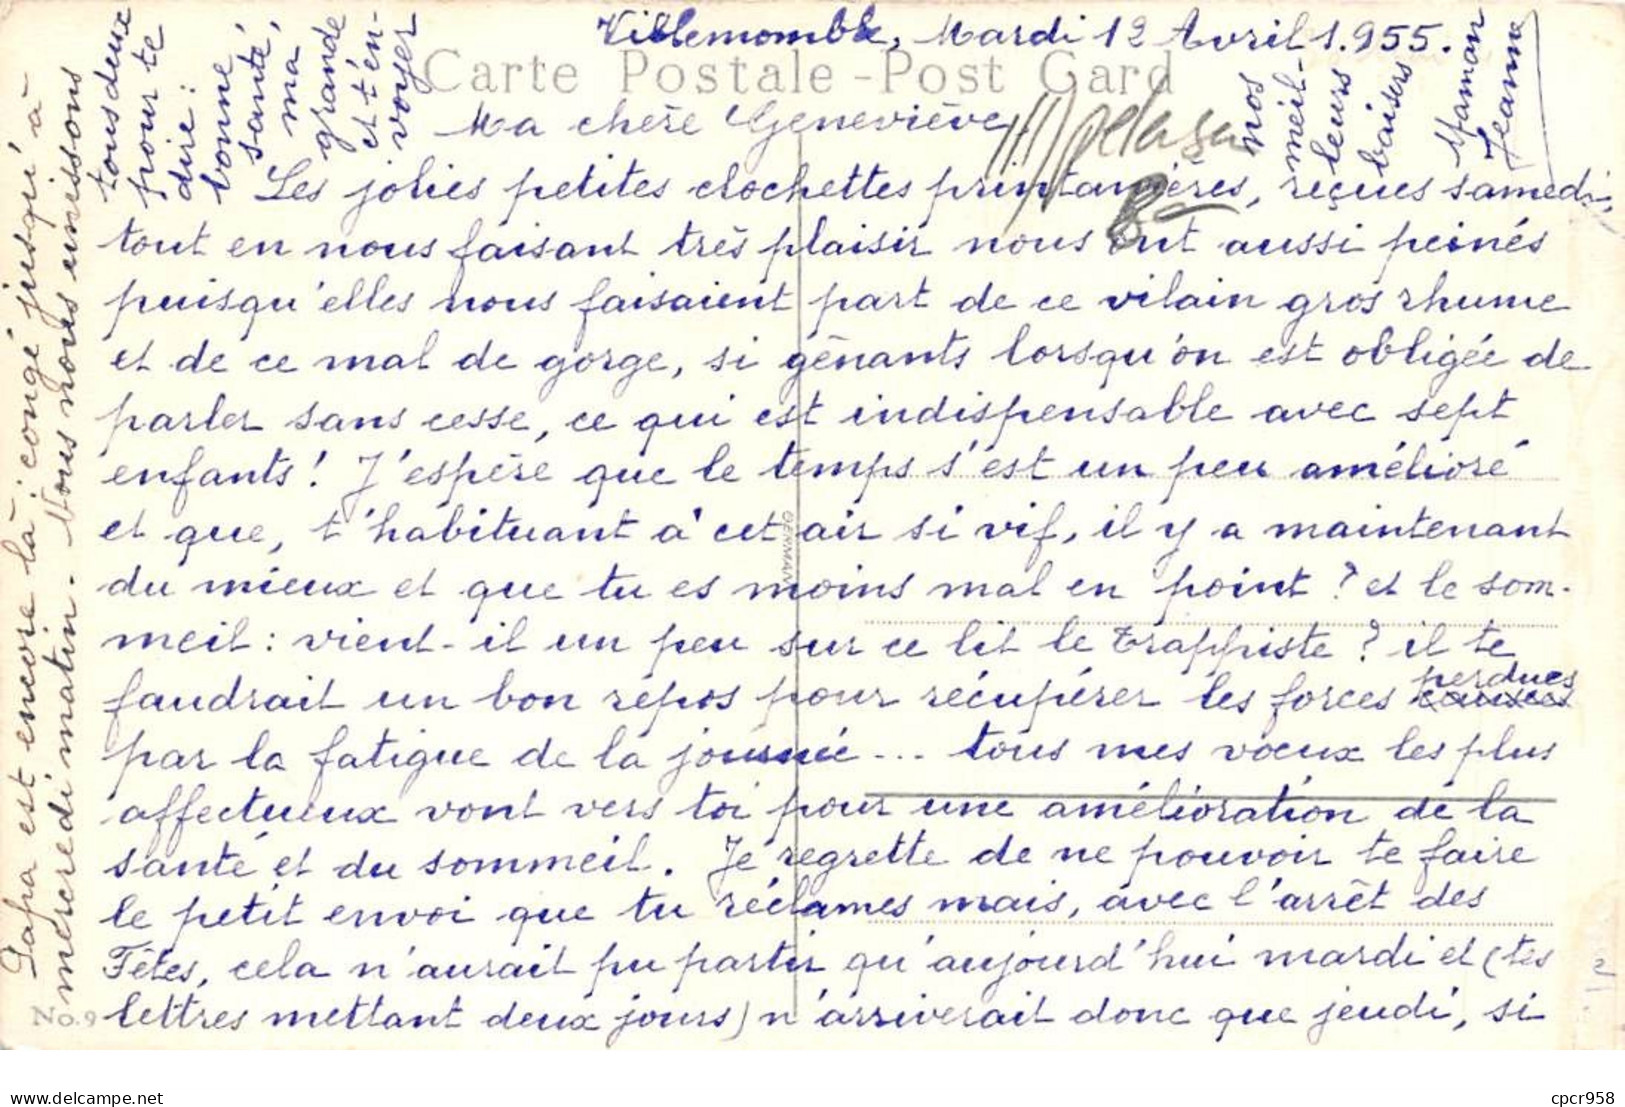 Villemomble, Mardi 12 Avril 1.955.
Carte Postale - Post Card
Ma chère Geneviève,
Les jolies petites clochettes printanières, reçues samedi,
tout en nous faisant très plaisir nous ont aussi peinés
puisqu'elles nous faisaient part de ce vilain gros rhume
et de ce mal de gorge, si gênants lorsqu'on est obligée de
parler sans cesse, ce qui est indispensable avec sept
enfants! J'espère que le temps s'est un peu amélioré
et que, t'habituant à cet air si vif, il y a maintenant
du mieux et que tu es moins mal en point ? et le som-
meil : vient-il un peu sur ce lit de trappiste ? il te
faudrait un bon repos pour récupérer les forces perdues
par la fatigue de la journée... tous mes voeux les plus
affectueux vont vers toi pour une amélioration de la
santé et du sommeil. Je regrette de ne pouvoir te faire
le petit envoi que tu réclames mais, avec l'arrêt des
Fêtes, cela n'aurait pu partir qu'aujourd'hui mardi et (tes
lettres mettant deux jours) n'arriverait donc que jeudi, si
Papa est encore là : congé jusqu'à
mercredi matin - Nous nous unissons
tous deux
pour te
dire :
bonne
santé,
ma
grande
et t'en-
voyer
nos
meil-
leurs
baisers
Maman
Jeanne
GERMANY
No. 9
www.delcampe.net
cpcr958